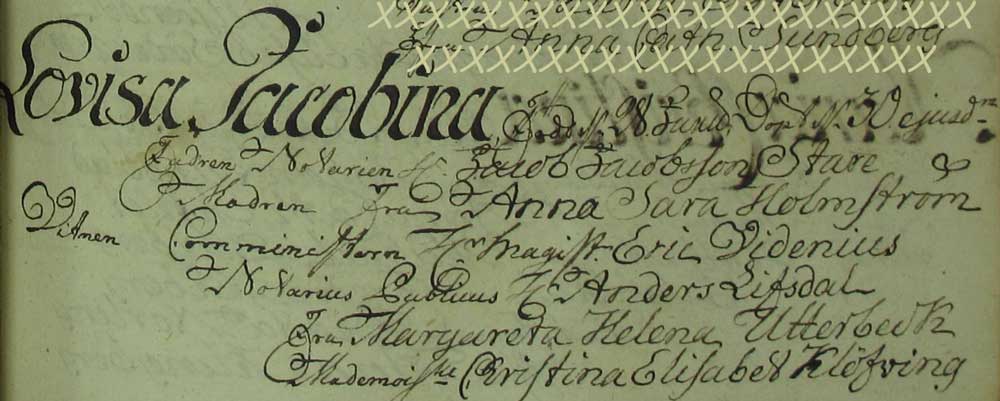 Fru Anna Cath Sundberg
Lovisa Jacobina Född d. 28 Junii, Döpt d. 30 ejusd.
Fadren Notarien H. Jacob Jacobsson Stare
Madren Fru Anna Sara Holmström
Vitnen Comministern Hr. Magist. Eric Videnius
Notarius Publicus H. Anders Lifsdal
Fru Margareta Helena Utterbeck
Mademoiselle Christina Elisabet Klöfving